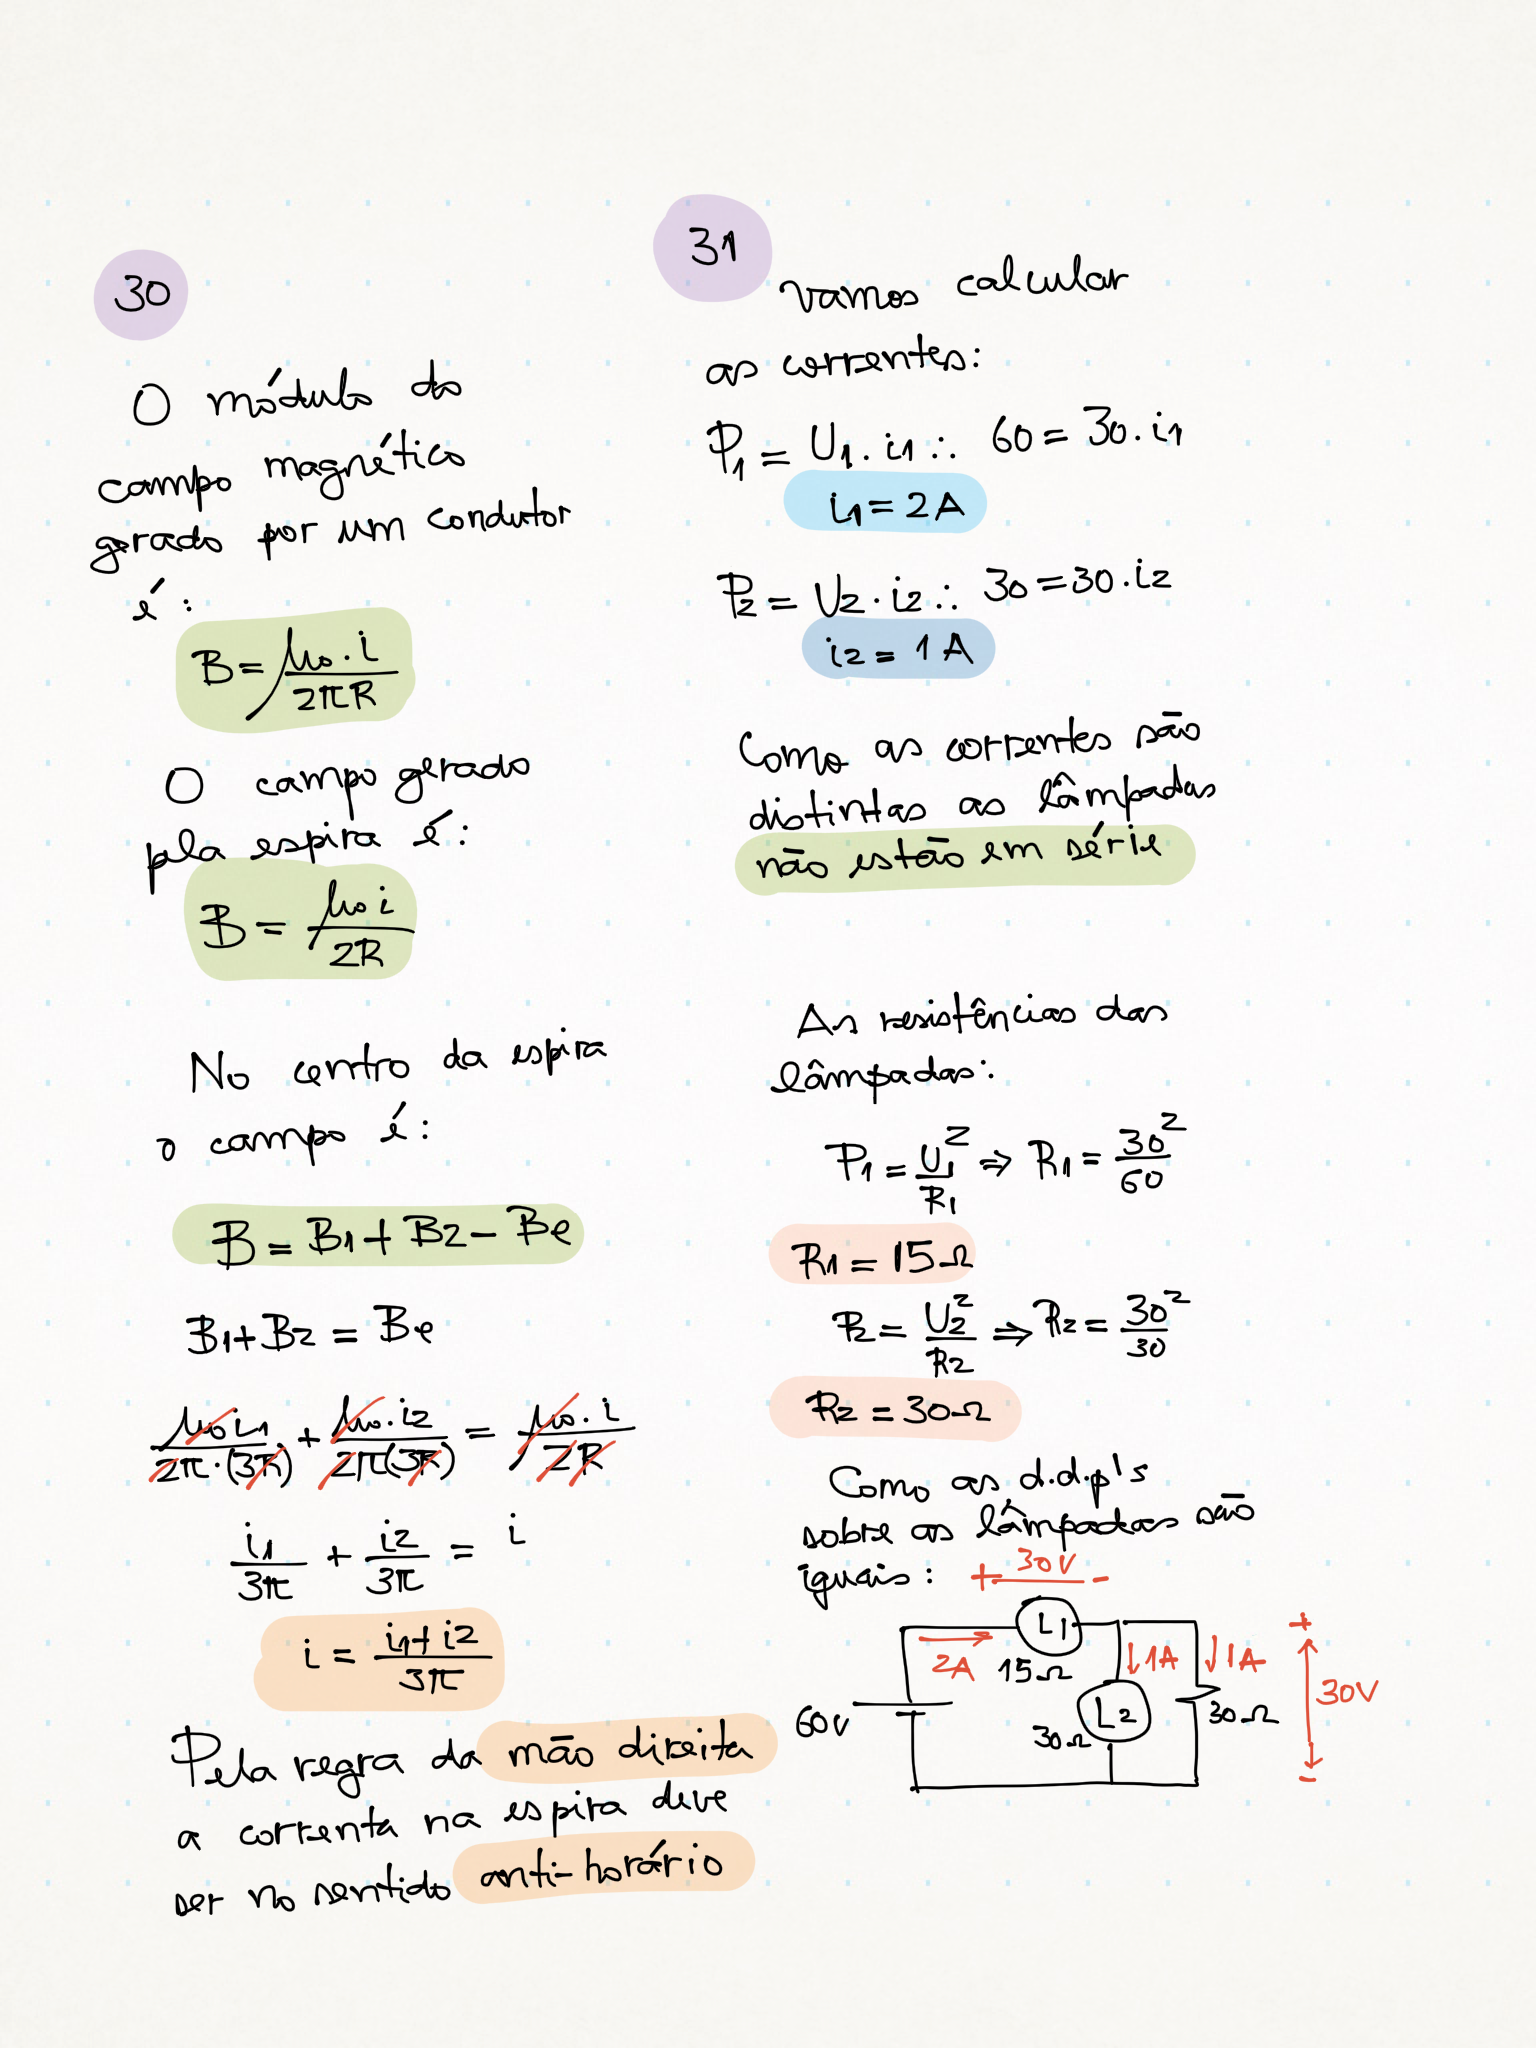 30
O módulo do
campo magnético
gerado por um condutor
é:
B = μ₀.i / 2πR
O campo gerado
pela espira é:
B = μ₀ i / 2R
No centro da espira
o campo é:
B = B1 + B2 - Be
B1 + B2 = Be
μ₀ i1 / 2π.(3R) + μ₀.i2 / 2π(3R) = μ₀.i / 2R
i1 / 3π + i2 / 3π = i
i = i1 + i2 / 3π
Pela regra da mão direita
a correnta na espira deve
ser no sentido anti-horário
31
Vamos calcular
as correntes:
P1 = U1.i1 ∴ 60 = 30.i1
i1 = 2A
P2 = U2.i2 ∴ 30 = 30.i2
i2 = 1A
Como as correntes são
distintas as lâmpadas
não estão em série
As resistências das
lâmpadas:
P1 = U1² / R1 ⇒ R1 = 30² / 60
R1 = 15Ω
P2 = U2² / R2 ⇒ R2 = 30² / 30
R2 = 30Ω
Como as d.d.p's
sobre as lâmpadas são
iguais:
+ 30V -
L1
2A
15Ω
1A
1A
+
60V
L2
30Ω
30Ω
30V
-